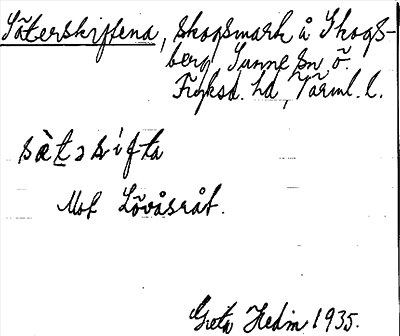 Säterskiftena, skogsmark å Skogs-
berg Sunne sn ö.
Fryksd. hd, Värml. l.
Mot Lövåsråt.
Greta Hedin 1935.